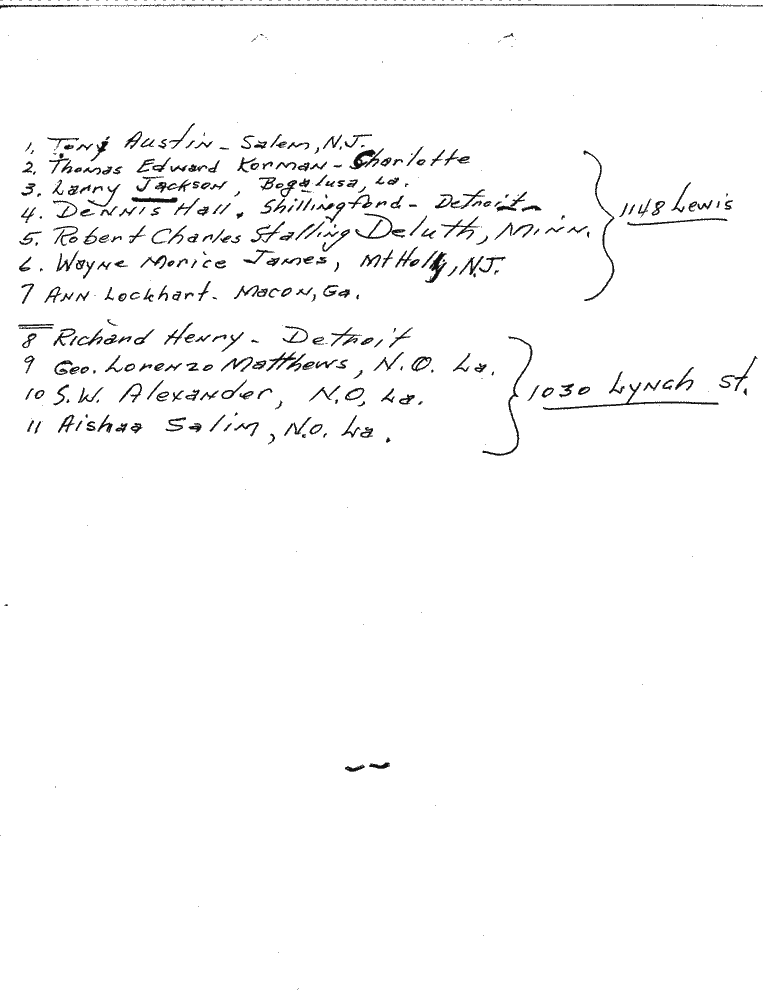 1. Tony Austin - Salem, N.J.
2. Thomas Edward Korman - Charlotte
3. Larry Jackson, Bogalusa, La.
4. Dennis Hall, Shillingford - Detroit - 1148 Lewis
5. Robert Charles Stalling Deluth, Minn.
6. Wayne Morice James, Mt Holly, N.J.
7 Ann Lockhart - Macon, Ga.
8 Richard Henry - Detroit
9 Geo. Lorenzo Matthews, N.O. La.
10 S.W. Alexander, N.O, La. 1030 Lynch St.
11 Aishaa Salim, N.O. La.